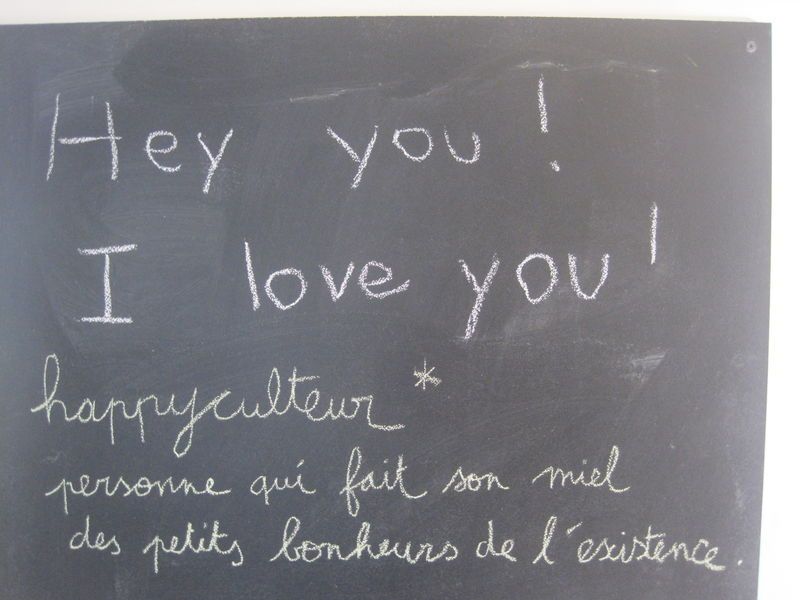 Hey you !
I love you !
happyculteur *
personne qui fait son miel
des petits bonheurs de l'existence.